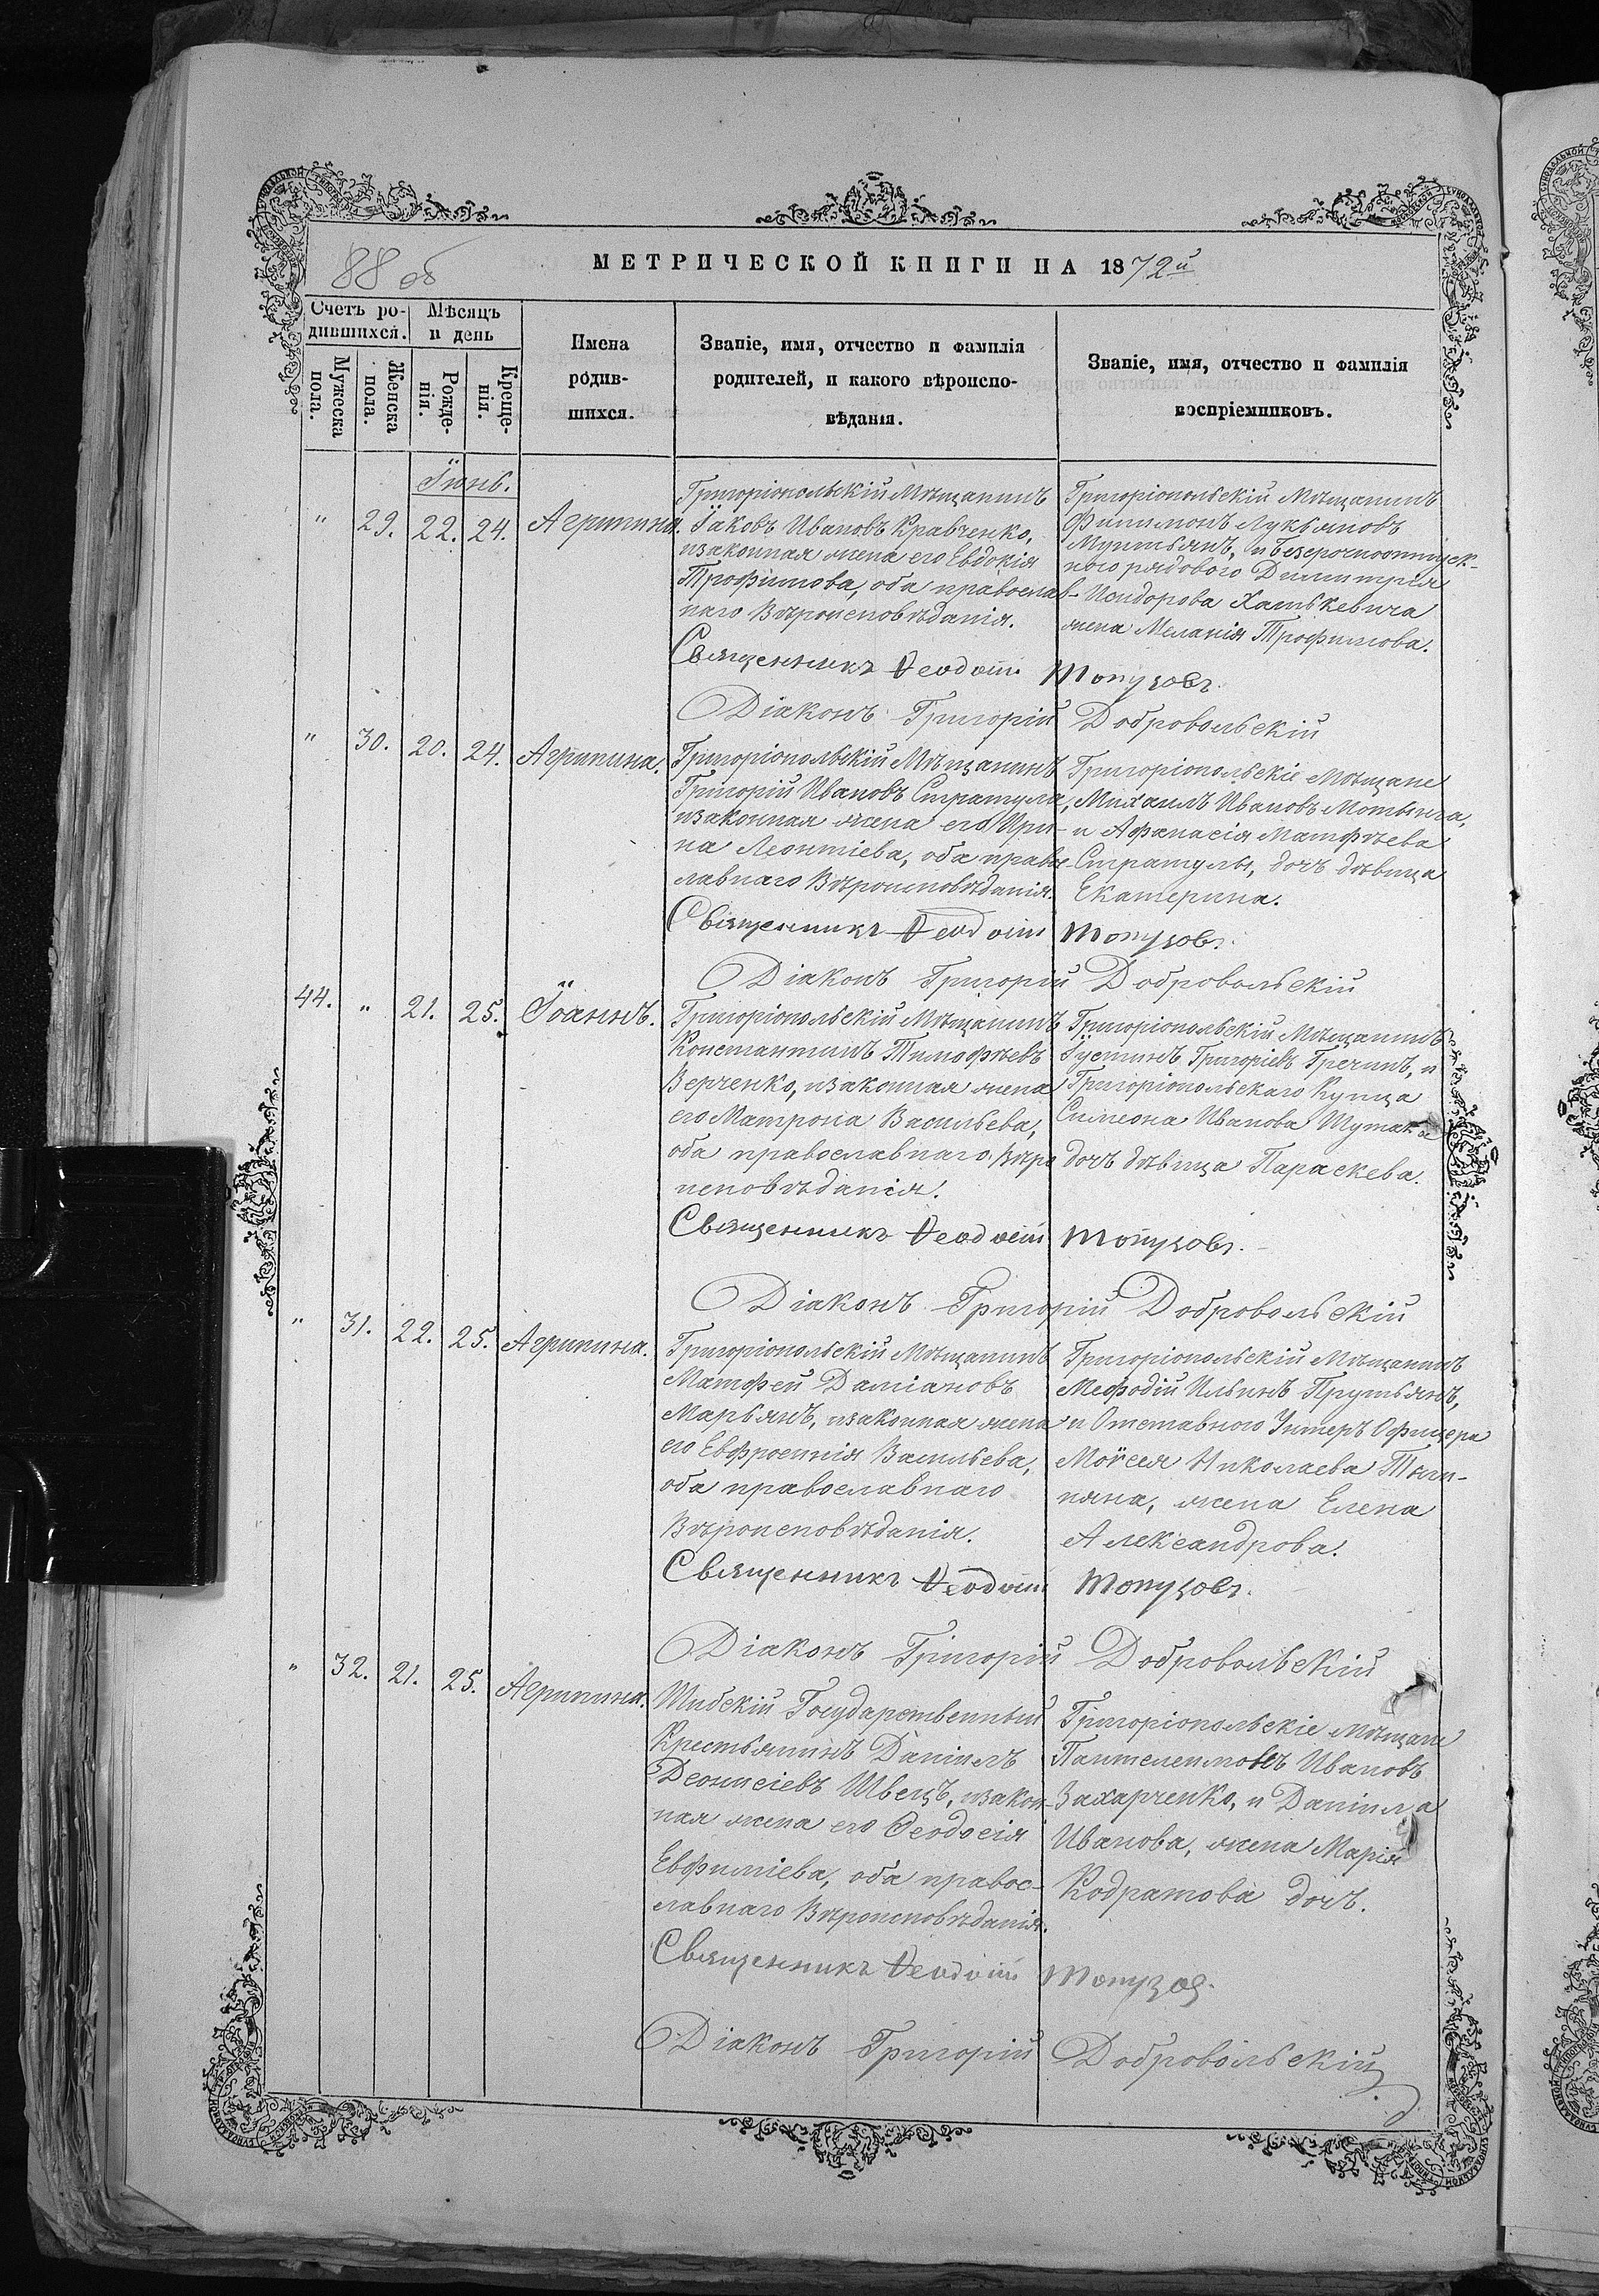 88 об
МЕТРИЧЕСКОЙ КНИГИ НА 1872й
Счетъ ро-
дившихся.
Мѣсяцъ
и день
Мужеска
пола.
Женска
пола.
Рожде-
нія.
Креще-
нія.
Имена
родив-
шихся.
Званіе, имя, отчество и фамилія
родителей, и какого вѣроиспо-
вѣданія.
Званіе, имя, отчество и фамилія
воспріемниковъ.
Іюнь.
" 29. 22. 24. Агрипина.
Григоріопольскій Мѣщанинъ
Іаковъ Ивановъ Кравченко,
и законная жена его Евдокія
Трофимова, оба православ-
наго Вѣроисповѣданія.
Григоріопольскій Мѣщанинъ
Филимонъ Лукьяновъ
Мунтьянъ, и Безсрочноотпуск-
ного рядового Димитрія
Исидорова Хатькевича
жена Меланія Трофимова.
Священникъ Ѳеодоти Топузовъ.
Діаконъ Григорій Добровольскій
" 30. 20. 24. Агрипина.
Григоріопольскій Мѣщанинъ
Григорій Ивановъ Стратула,
и законная жена его Ири-
на Леонтіева, оба правос-
лавнаго Вѣроисповѣданія.
Григоріопольскіе Мѣщане
Михаилъ Ивановъ Мотынга,
и Афанасія Матфѣева
Стратулы, дочъ дѣвица
Екатерина.
Священникъ Ѳеодоти Топузовъ.
Діаконъ Григорій Добровольскій
44. " 21. 25. Іоаннъ.
Григоріопольскій Мѣщанинъ
Константинъ Тимофѣевъ
Верченко, и законная жена
его Матрона Васильева,
оба православнаго Вѣро
исповѣданія.
Григоріопольскій Мѣщанинъ
Іустинъ Григоріевъ Гречинъ, и
Григоріопольскаго Купца
Симеона Иванова Шутака
дочъ дѣвица Параскева.
Священникъ Ѳеодоти Топузовъ.
Діаконъ Григорій Добровольскій
" 31. 22. 25. Агрипина.
Григоріопольскій Мѣщанинъ
Матфей Даміановъ
Марьянъ, и законная жена
его Евфросинія Васильева,
оба православнаго
Вѣроисповѣданія.
Григоріопольскій Мѣщанинъ
Мефодій Ильинъ Прутьянъ,
и Отставного Унтеръ Офицера
Моисея Николаева
жена Елена
Александрова.
Священникъ Ѳеодоти Топузовъ.
Діаконъ Григорій Добровольскій
" 32. 21. 25. Агрипина.
Шибскій Государственный
Крестьянинъ Даніилъ
Деонисіевъ Швецъ, и закон-
ная жена его Ѳеодосія
Евфиміева, оба правос-
лавнаго Вѣроисповѣданія.
Григоріопольскіе Мѣщане
Пантелеимовъ Ивановъ
Захарченко, и Даніила
Иванова, жена Марія
Кодратова дочъ.
Священникъ Ѳеодоти Топузов.
Діаконъ Григорій Добровольскій